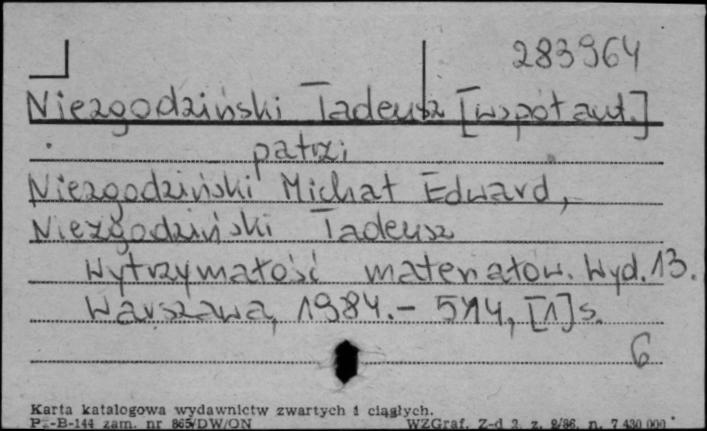 283964
Niezgodziński Tadeusz [współaut.]
patrzi
Niezgodziński Michał Edward,
Niezgodziński Tadeusz
Wytrzymałość materiałów. Wyd. 13.
Warszawa, 1984. - 514, [1] s.
6
Karta katalogowa wydawnictw zwartych i ciągłych.
Pu-B-144 zam. nr 865/DW/ON WZGraf. Z-d 2. z. 2/86. n. 7 430 000